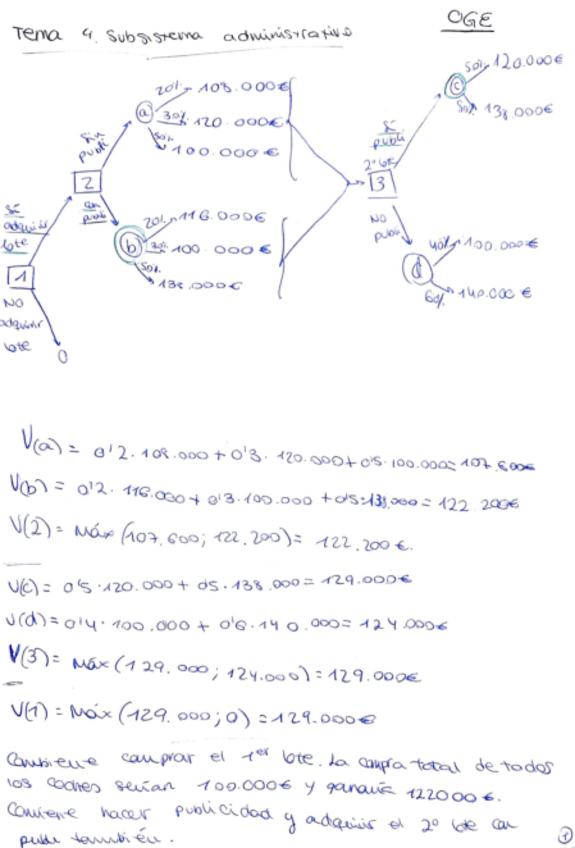 OGE
Tema 4. Subsistema administrativo
20% 108.000€
a 30% 120.000€
50% 100.000€
Sin publi
2
con publi
20% 116.000€
b 30% 100.000€
50% 138.000€
Sí adquirir lote
1
NO adquirir lote
0
50% 120.000€
c
50% 138.000€
Sí publi
2º lote
3
NO publi
40% 100.000€
d
60% 140.000€
V(a) = 0'2 · 108.000 + 0'3 · 120.000 + 0'5 · 100.000 = 107.600€
V(b) = 0'2 · 116.000 + 0'3 · 100.000 + 0'5 · 138.000 = 122.200€
V(2) = Máx (107.600; 122.200) = 122.200€.
V(c) = 0'5 · 120.000 + 0'5 · 138.000 = 129.000€
V(d) = 0'4 · 100.000 + 0'6 · 140.000 = 124.000€
V(3) = Máx (129.000; 124.000) = 129.000€
V(1) = Máx (129.000; 0) = 129.000€
Conviene comprar el 1er lote. La compra total de todos
los coches serían 100.000€ y ganaría 122000€.
Conviene hacer publicidad y adquirir el 2º lote con
publi también.
1